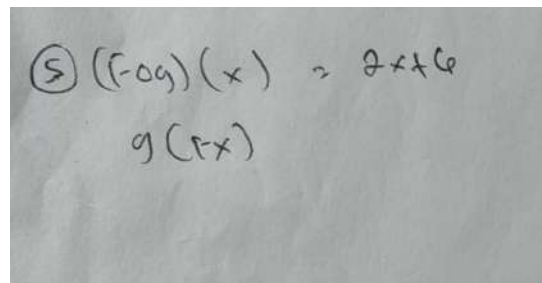 ⑤ (f∘g)(x) = 2x+6
g(fx)